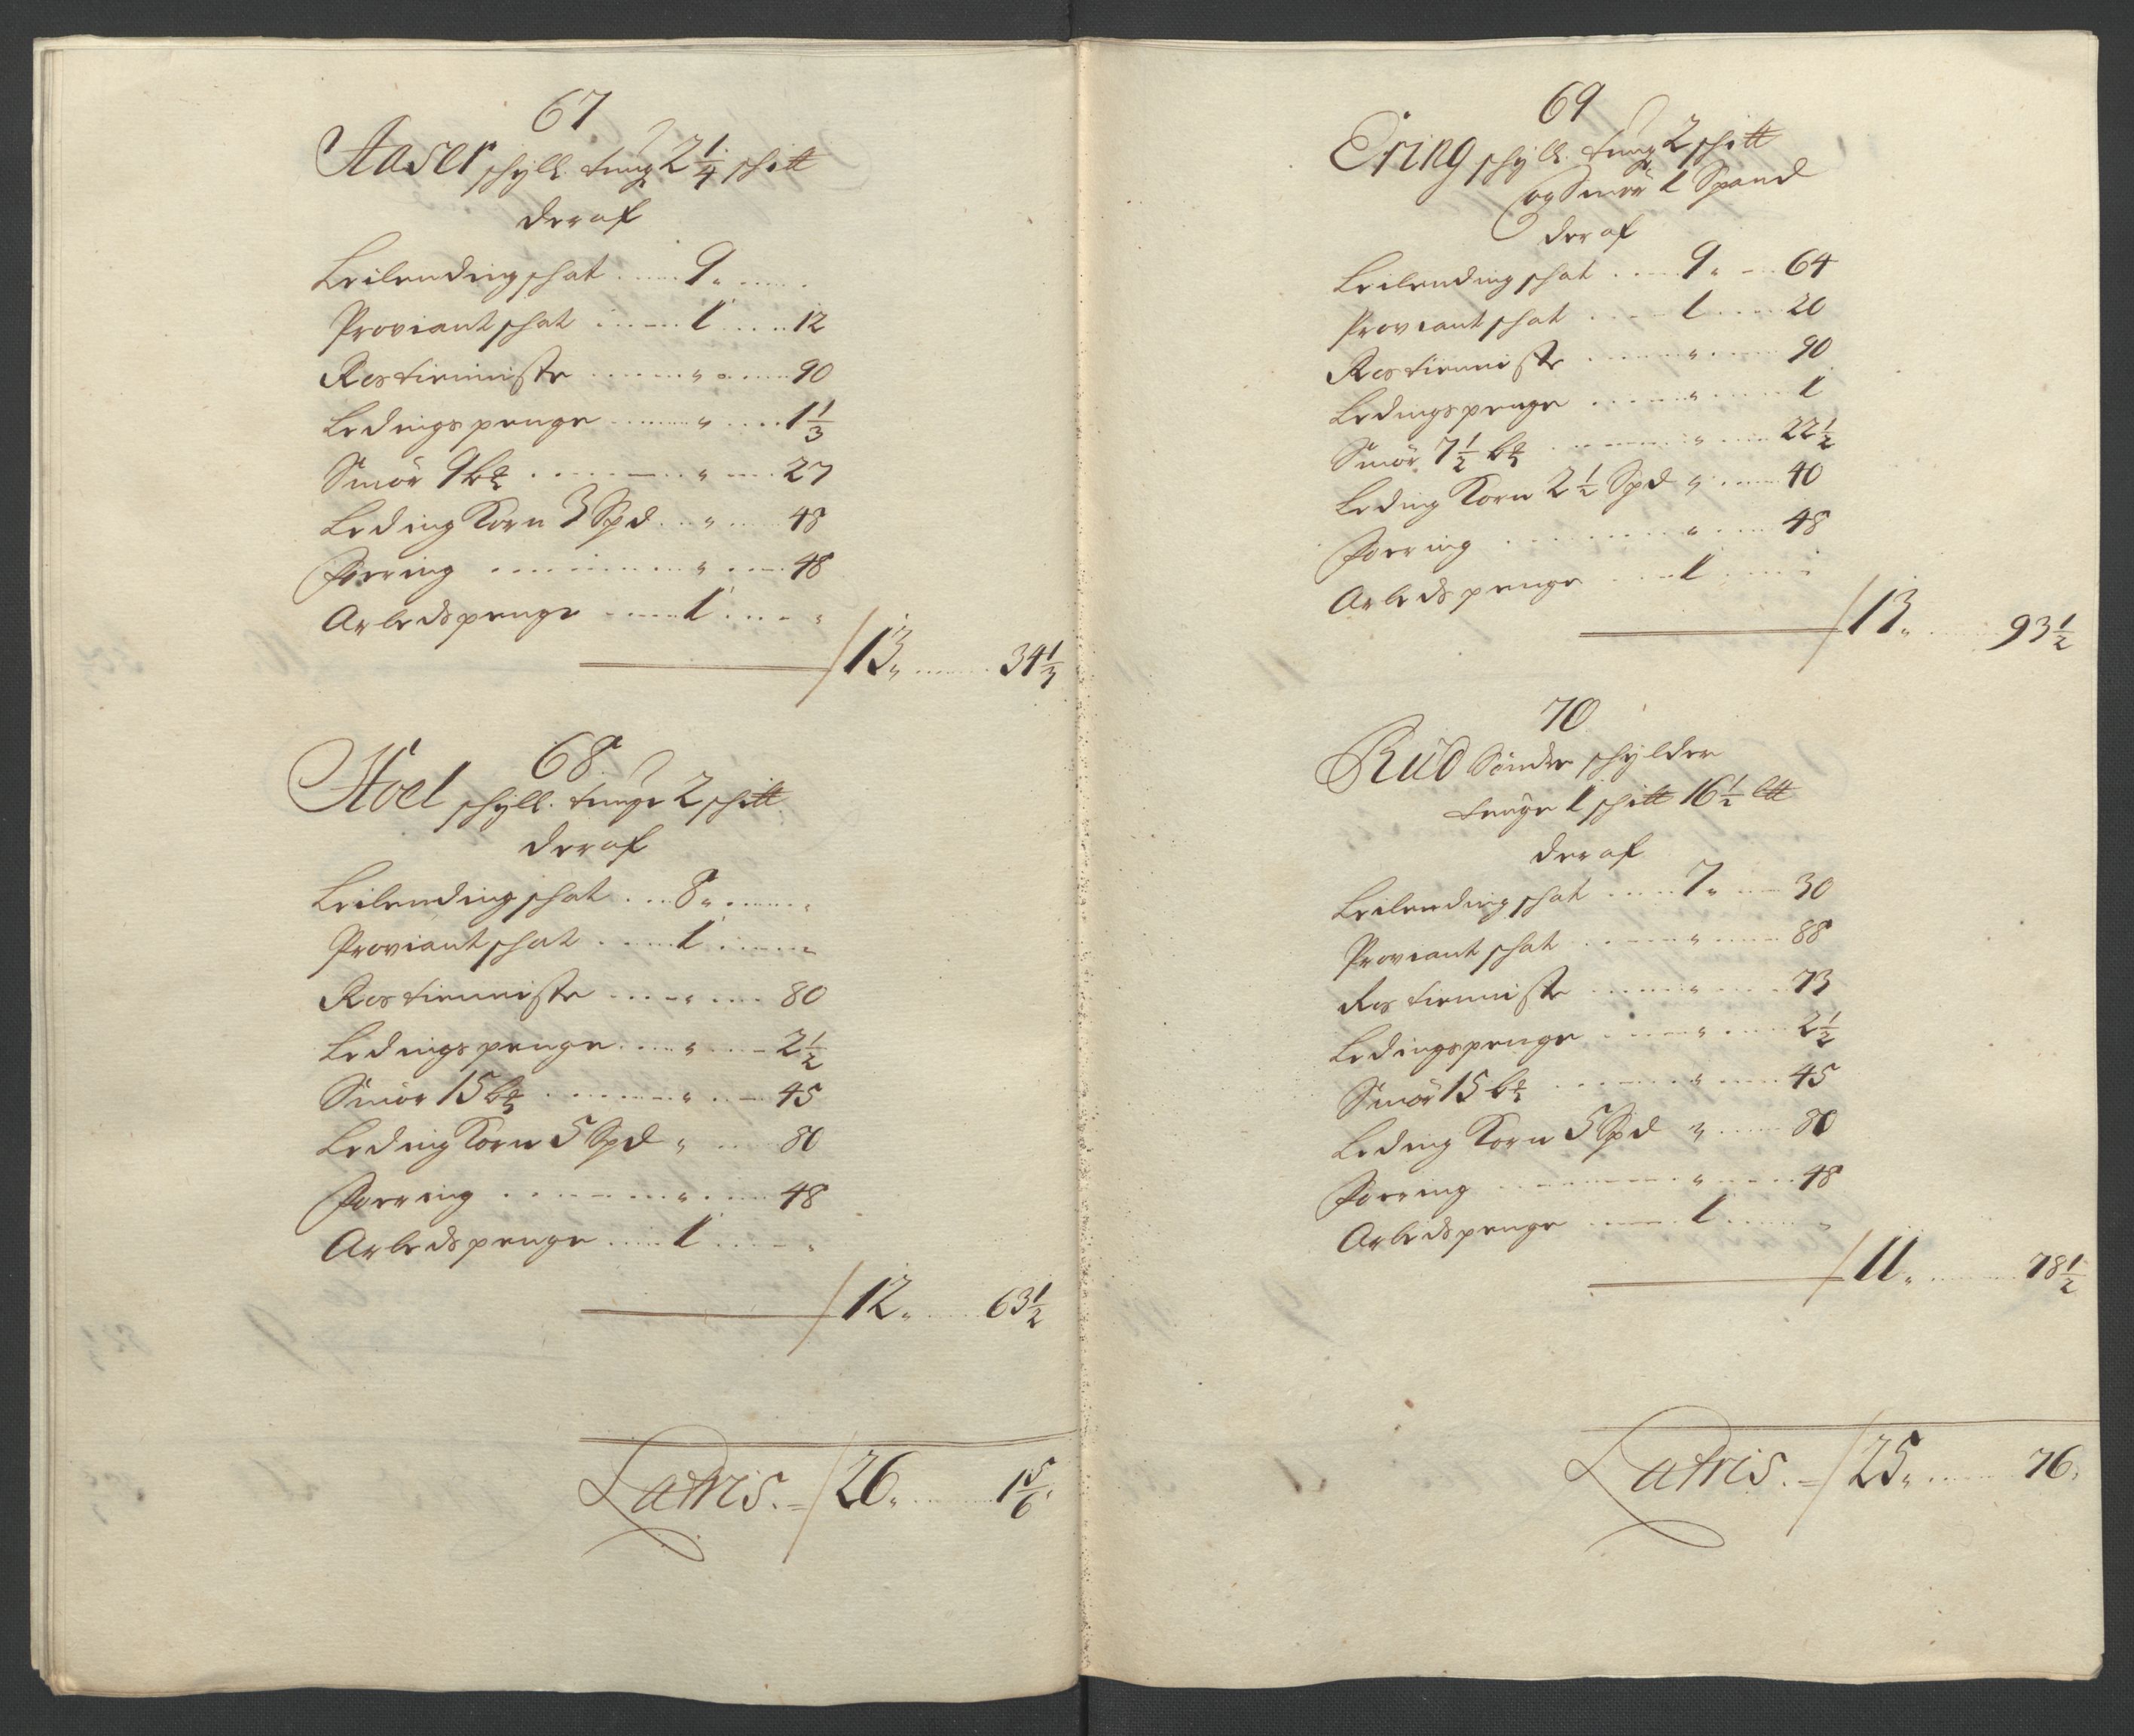 67
Aaser schyll. tung 2 1/4 schitt
deraf
Leilending schat ..... 9 „ .....
Proviant schat ..... 1 ..... 12
Rostienniste ..... „ ..... 90
Ledings penge ..... „ ..... 1 1/3
Smör 9 b℔ ..... „ ..... 27
Leding Korn 3 Spd ... „ ..... 48
Foering ..... „ ..... 48
Arbedspenge ..... 1 ..... „
13 „ ..... 34 1/3
68
Hoel schyll. tunge 2 schitt
deraf
Leilending schat ... 8 „ ..... „
Proviant schat ..... 1 ..... „
Rostienniste ..... „ ..... 80
Ledings penge ..... „ ..... 2 1/2
Smör 15 b℔ ..... „ ..... 45
Leding Korn 5 Spd „ ..... 80
Foering ..... „ ..... 48
Arbedspenge ..... 1 ..... „
12 „ ..... 63 1/2
Latris. = 26 „ ..... 1 5/6 „
69
Ering schyll. tung 2 schitt
og Smör 1 Spand
deraf
Leilending schat ..... 9 „ ... 64
Proviant schat ..... 1 ..... 20
Rostienniste ..... „ ..... 90
Ledingspenge ..... „ ..... 1
Smör 7 1/2 b℔ ..... „ ..... 22 1/2
Leding Korn 2 1/2 Spd „ ..... 40
Foering ..... „ ..... 48
Arbedspenge ..... 1 ..... „
13 „ ..... 93 1/2
70
Rud Sönder schylder
tunge 1 schitt 16 1/2 ltt
deraf
Leilending schat ..... 7 „ ... 30
Proviant schat ..... „ ..... 88
Rostienniste ..... „ ..... 73
Ledingspenge ..... „ ..... 2 1/2
Smör 15 b℔ ..... „ ..... 45
Leding Korn 5 Spd „ ..... 80
Foering ..... „ ..... 48
Arbedspenge ..... 1 ..... „
11 „ ..... 78 1/2
Latris. = 25 „ ..... 76 „